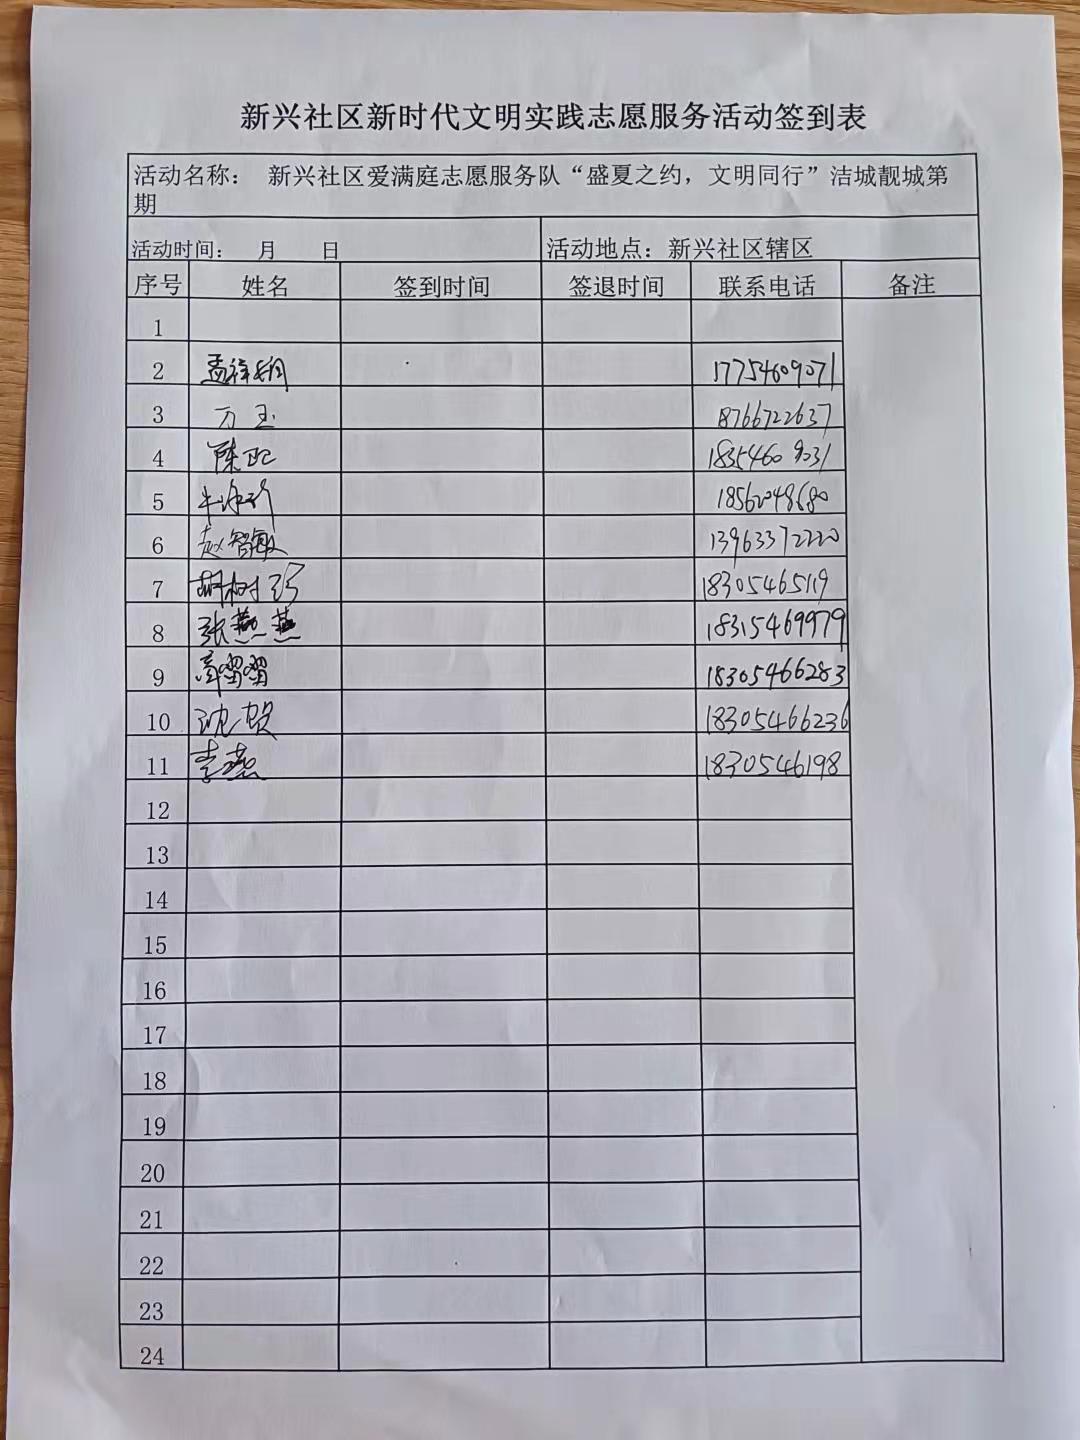 新兴社区新时代文明实践志愿服务活动签到表
活动名称： 新兴社区爱满庭志愿服务队“盛夏之约，文明同行”洁城靓城第
期
活动时间： 月 日 活动地点：新兴社区辖区
序号 姓名 签到时间 签退时间 联系电话 备注
1
2 孟祥娟 17754609071
3 万玉 8766722637
4 陈 1835460 9031
5 牛 18562048680
6 赵智敏 13963372220
7 胡树巧 18305465119
8 张燕燕 18315469979
9 18305466283
10 沈贺 18305466236
11 李燕 1830546198
12
13
14
15
16
17
18
19
20
21
22
23
24